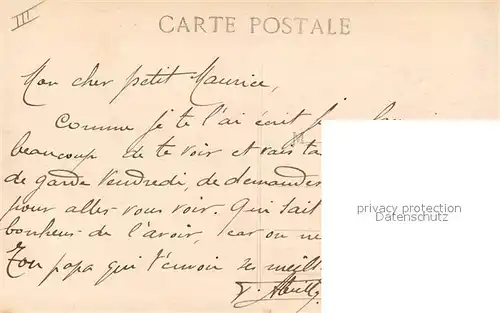 III
CARTE POSTALE
Mon cher petit Maurice,
Comme je te l'ai écrit
beaucoup de te voir et vais ta
de garde Vendredi, de demander
pour aller vous voir. Qui sait
bonheur de l'avoir, car on ne
Ton papa qui t'envoie ses meill
privacy protection
Datenschutz